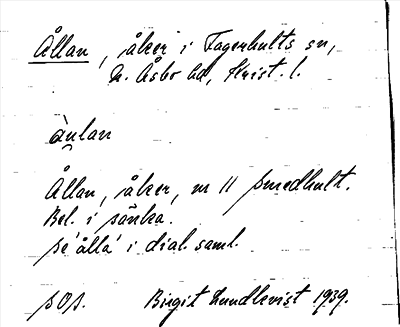 Ållan, åker i Fagerhults sn,
N. Åsbo hd, Krist. l.
Ållan, åker, nr 11 Smedhult.
Bel. i sänka.
se 'ålla' i dial. saml.
Birgit Lundkvist 1939.